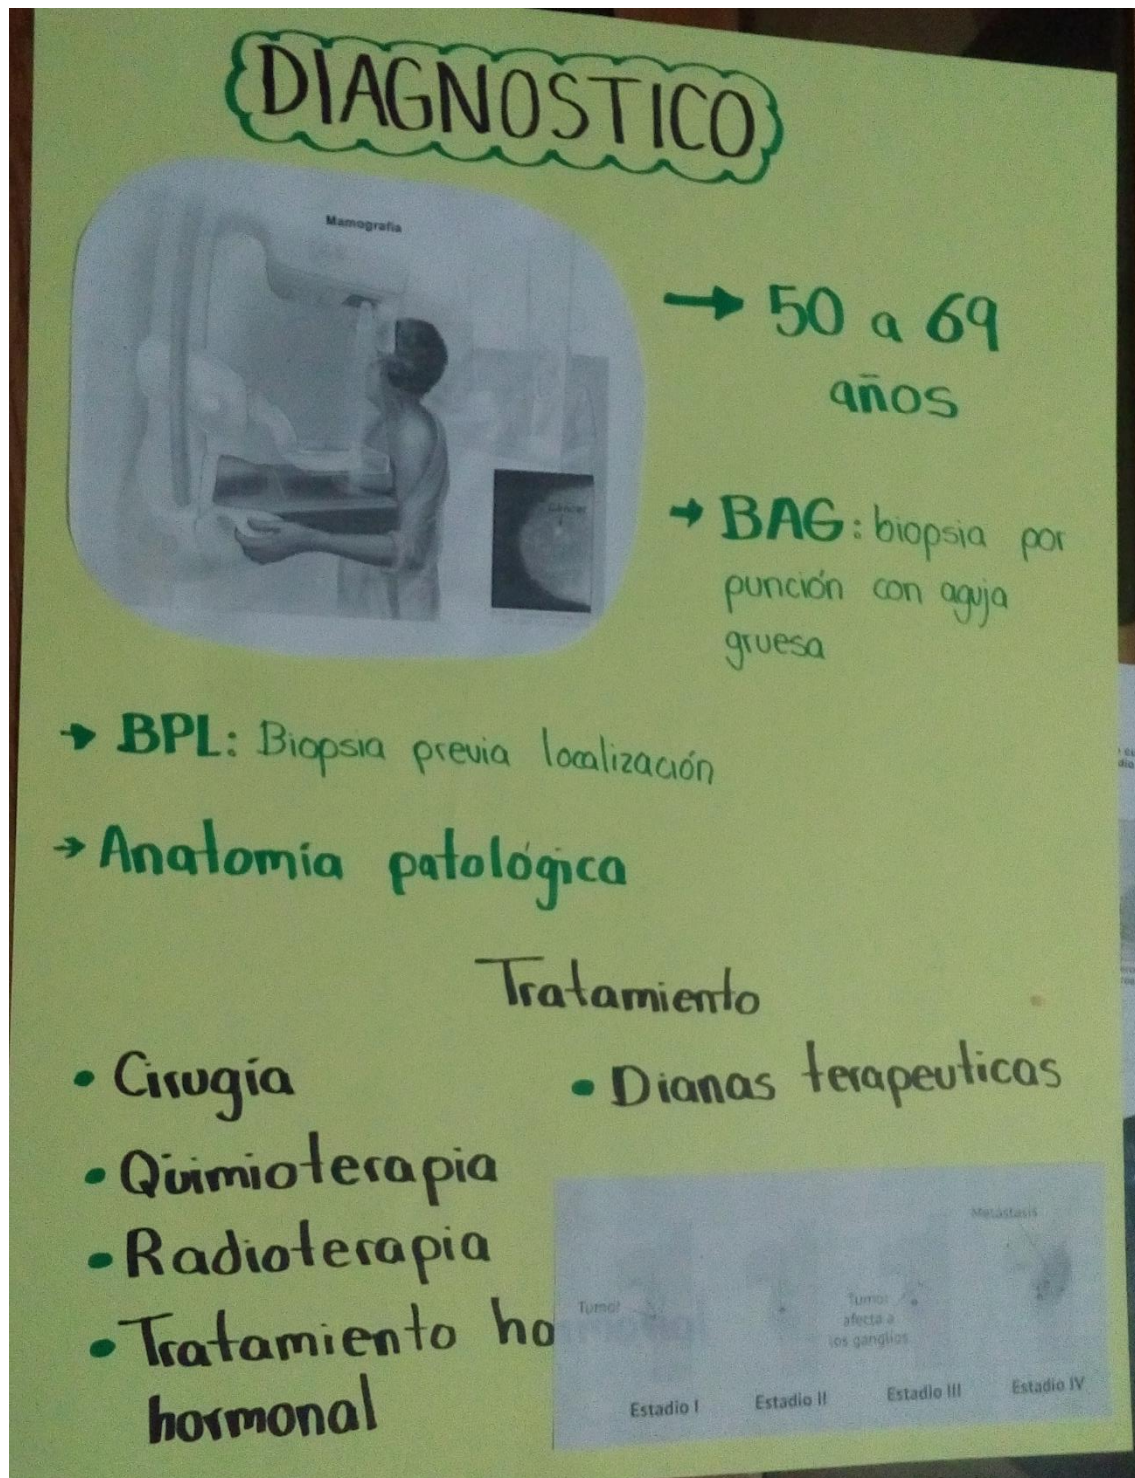 DIAGNOSTICO
Mamografía
→ 50 a 69
años
Cáncer
→ BAG: biopsia por
punción con aguja
gruesa
→ BPL: Biopsia previa localización
→ Anatomía patológica
Tratamiento
• Cirugía
• Quimioterapia
• Radioterapia
• Tratamiento ho
hormonal
• Dianas terapeuticas
Metástasis
Tumor
Tumor
afecta a
los ganglios
Estadio I
Estadio II
Estadio III
Estadio IV